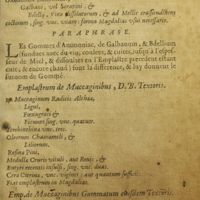 Galbani, vel Serapini, &
Bdellij, Vino dissolutorum, & ad Mellis crassitudinem
coctorum, sing. unc. unam: formen. Magdalias usui necessar.
PARAPHRASE.
LEs Gommes d'Ammoniac, de Galbanum, & Bdellium
fondues avec du vin, coulées, & cuites, jusqu'à l'espes-
seur de Miel, & dissoutes en l'Emplastre precedent estant
cuite, & encore chaud font la difference, & luy donnent le
surnom de Gommé.
Emplastrum de Muccaginibus, D. B. Textoris.
Muccaginum Radicis Altheæ,
Lini,
Foenugraeci &
Ficuum sing. unc. quatuor.
Terebinthinæ unc. tres.
Oleorum Chamæmeli, &
Liliorum,
Resinæ Pini,
Medullæ Cruris vituli, aut Bovis, &
Butyri recentis insulsi, sing. unc. duas.
Ceræ Citrinæ, unc. viginti, aut quantum suffic:
Fiat emplastrum in Magdalias.
Emp. de Muccaginibus Gummatum ejusdem Textoris.